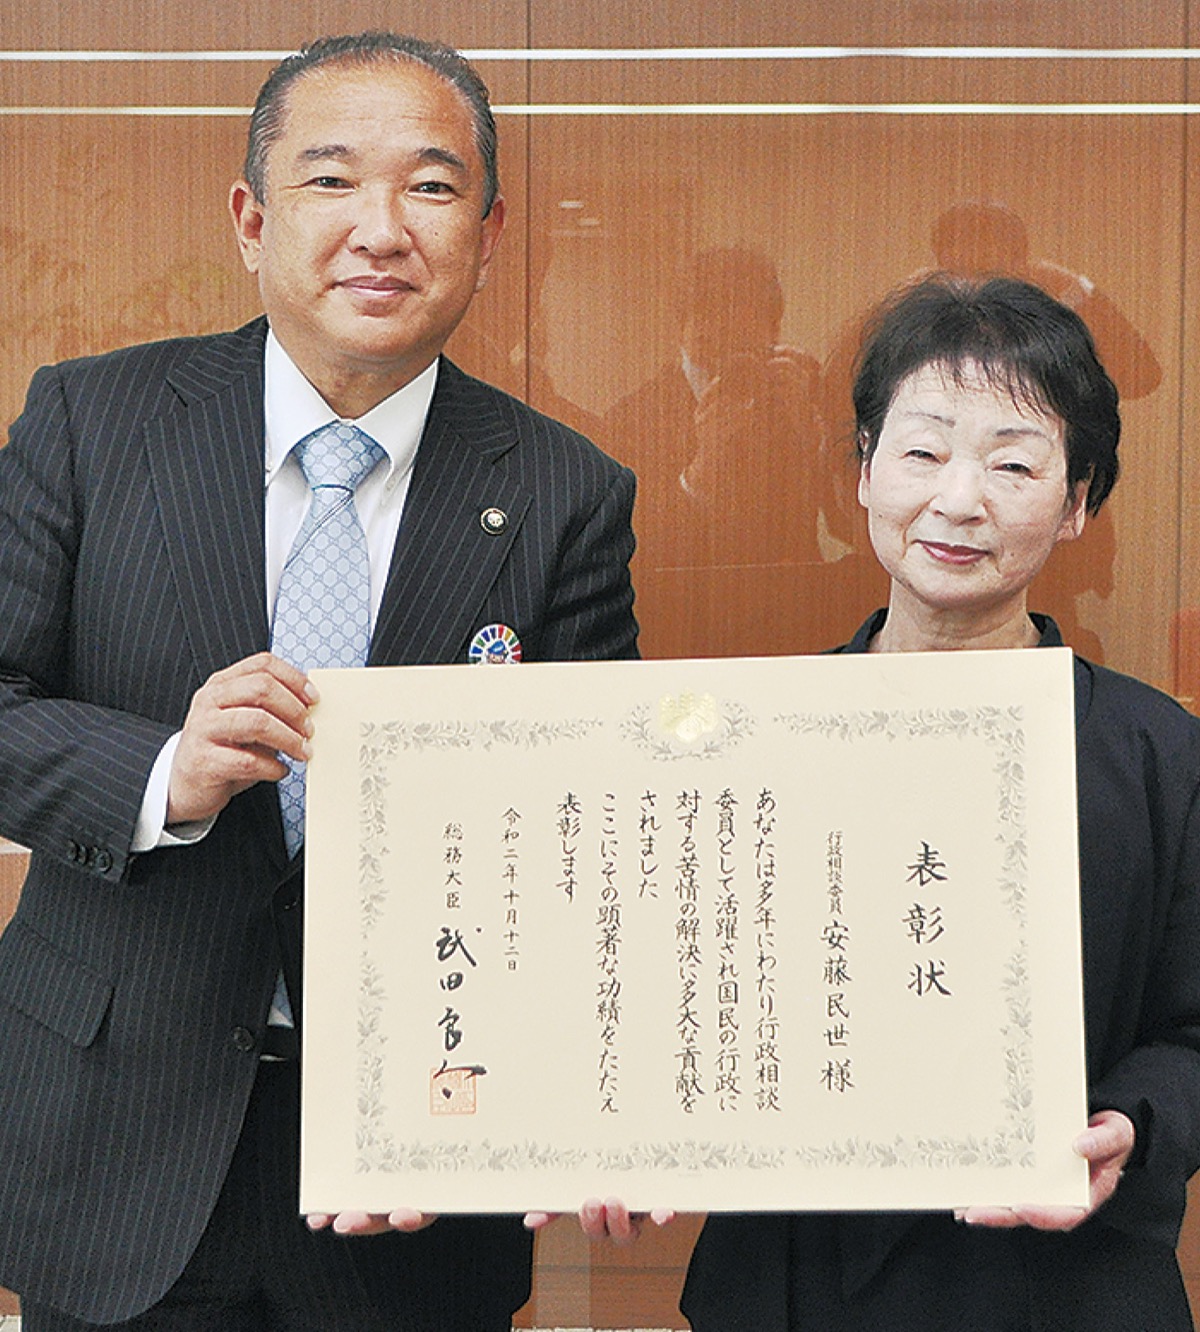 表彰状
行政相談委員 安藤民世様
あなたは多年にわたり行政相談
委員として活躍され国民の行政に
対する苦情の解決に多大な貢献を
されました
ここにその顕著な功績をたたえ
表彰します
令和二年十月十二日
総務大臣 武田良太